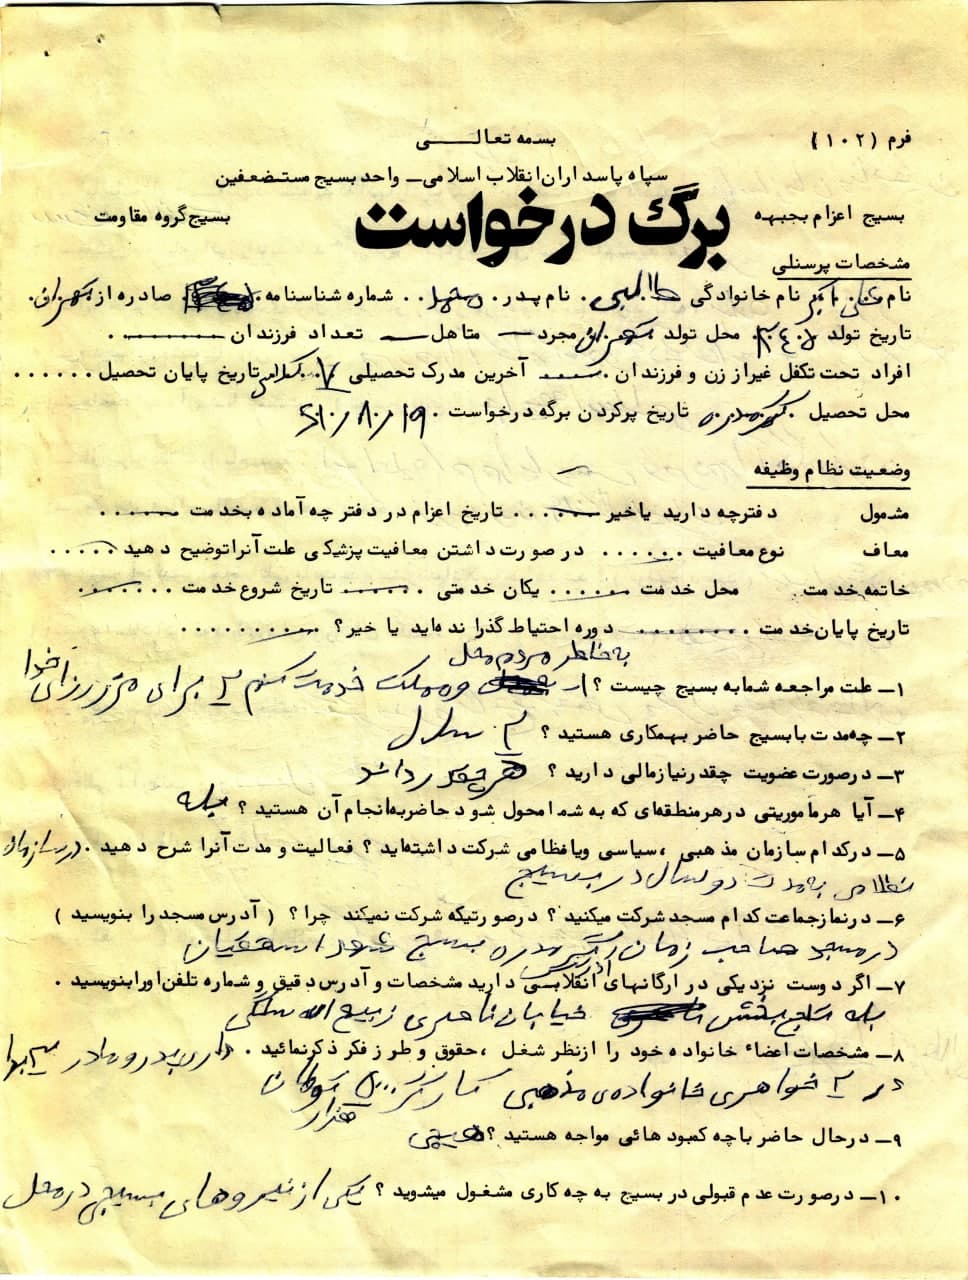 فرم (۱۰۲)
بسمه تعالی
سپاه پاسداران انقلاب اسلامی - واحد بسیج مستضعفین
بسیج اعزام بجبهه
برگ درخواست
بسیج گروه مقاومت
مشخصات پرسنلی
نام علی اکبر نام خانوادگی طالبی نام پدر شماره شناسنامه صادره از تهران
تاریخ تولد محل تولد تهران مجرد — متاهل — تعداد فرزندان
افراد تحت تکفل غیراز زن و فرزندان آخرین مدرک تحصیلی کلاس تاریخ پایان تحصیل
محل تحصیل تاریخ پرکردن برگه درخواست ۶۱/۸/۱۹
وضعیت نظام وظیفه
مشمول دفترچه دارید یاخیر تاریخ اعزام در دفترچه آماده بخدمت
معاف نوع معافیت در صورت داشتن معافیت پزشکی علت آنرا توضیح دهید
خاتمه خدمت محل خدمت یکان خدمتی تاریخ شروع خدمت
تاریخ پایان خدمت دوره احتیاط گذرانده‌اید یا خیر؟
به خاطر مردم محل
۱- علت مراجعه شما به بسیج چیست؟ و مملکت خدمت کنم برای خدا
۲- چه مدت با بسیج حاضر بهمکاری هستید؟ ۲ سال
۳- درصورت عضویت چقدر نیاز مالی دارید؟ هر چقدر دادند
۴- آیا هر مأموریتی در هر منطقه‌ای که به شما محول شود حاضر به انجام آن هستید؟ بله
۵- در کدام سازمان مذهبی ، سیاسی ویا نظامی شرکت داشته‌اید؟ فعالیت و مدت آنرا شرح دهید . در سازمان
نظامی به مدت دو سال در بسیج
۶- در نماز جماعت کدام مسجد شرکت میکنید؟ درصورتیکه شرکت نمیکند چرا؟ (آدرس مسجد را بنویسید)
در مسجد صاحب زمان بسیج شهدا
۷- اگر دوست نزدیکی در ارگانهای انقلابی دارید مشخصات و آدرس دقیق و شماره تلفن اورا بنویسید .
بله خیابان ناصری ذبیح اله
۸- مشخصات اعضاء خانواده خود را از نظر شغل ، حقوق و طرز فکر ذکر نمائید . دارای پدر و مادر
خواهری خانواده‌ی مذهبی کارگر تومان
هزار
۹- درحال حاضر با چه کمبودهائی مواجه هستید؟ هیچی
۱۰- درصورت عدم قبولی در بسیج به چه کاری مشغول میشوید؟ یکی از نیروهای بسیجی در محل